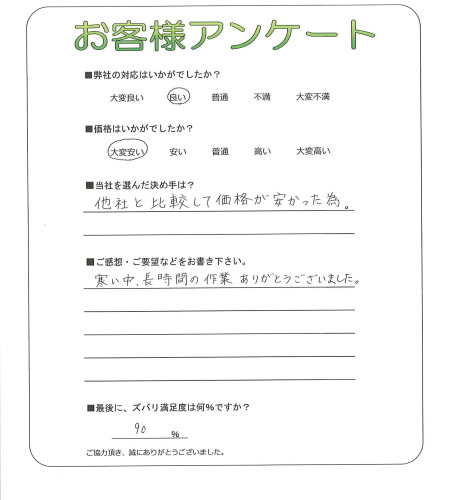 お客様アンケート
■弊社の対応はいかがでしたか？
大変良い 良い 普通 不満 大変不満
■価格はいかがでしたか？
大変安い 安い 普通 高い 大変高い
■当社を選んだ決め手は？
他社と比較して価格が安かった為。
■ご感想・ご要望などをお書き下さい。
寒い中、長時間の作業ありがとうございました。
■最後に、ズバリ満足度は何%ですか？
90 %
ご協力頂き、誠にありがとうございました。